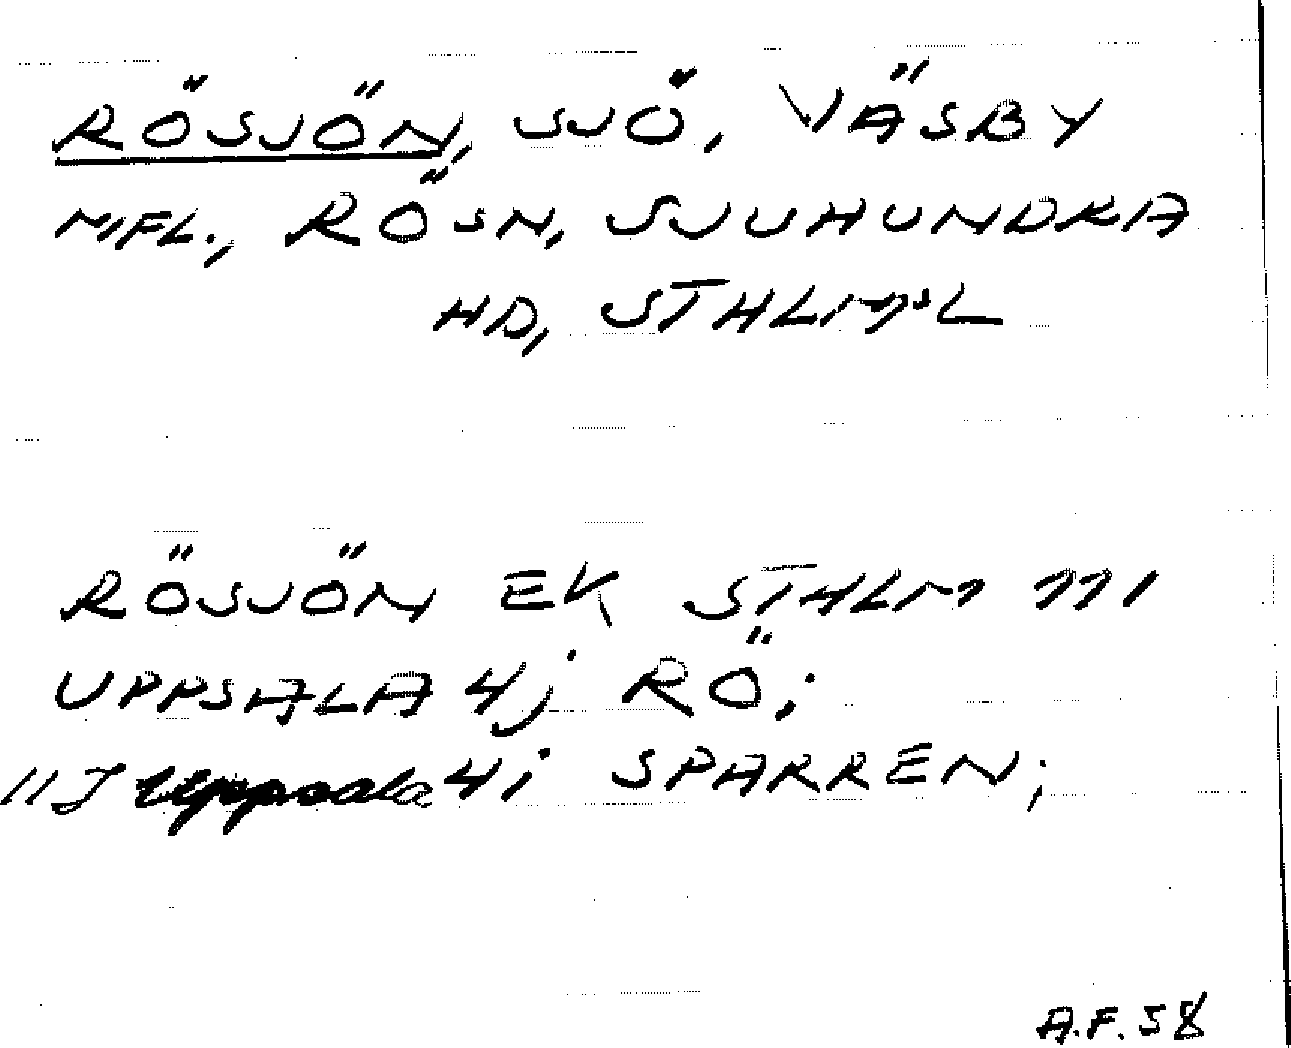 RÖSJÖN, SJÖ, VÄSBY
MFL., RÖ SN, SJUHUNDRA
HD, STHLMS L
RÖSJÖN EK STHLM 111
UPPSALA 4j RÖ;
11J Uppsala 4i SPARREN;
A.F. 58